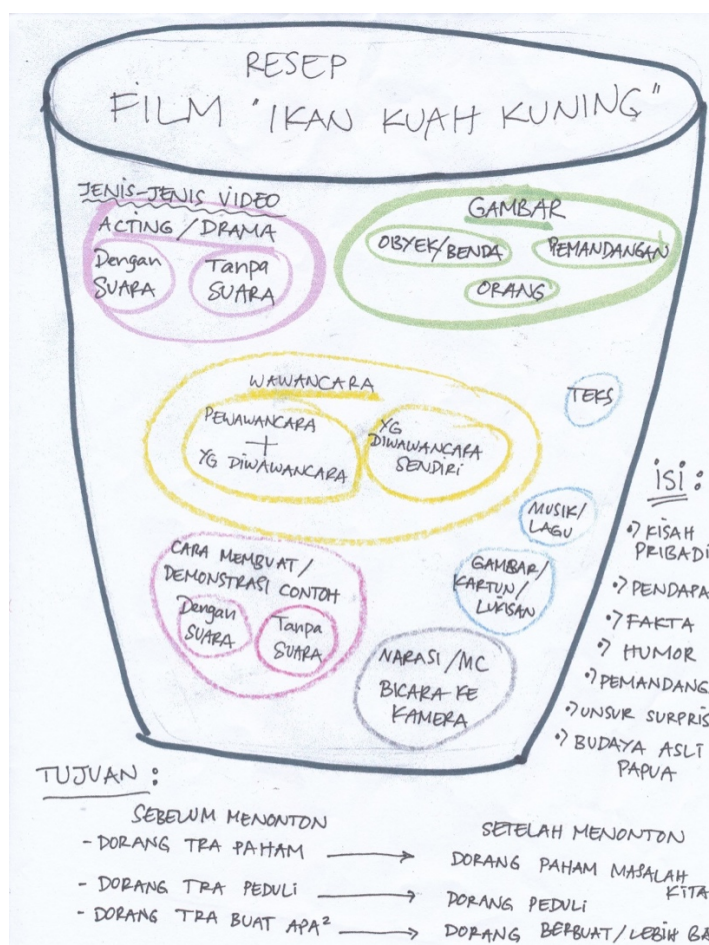 RESEP
FILM "IKAN KUAH KUNING"
JENIS-JENIS VIDEO
ACTING / DRAMA
Dengan
SUARA
Tanpa
SUARA
GAMBAR
OBYEK/BENDA
PEMANDANGAN
ORANG
WAWANCARA
PEWAWANCARA
+
YG DIWAWANCARA
YG
DIWAWANCARA
SENDIRI
TEKS
MUSIK/
LAGU
CARA MEMBUAT/
DEMONSTRASI CONTOH
Dengan
SUARA
Tanpa
SUARA
GAMBAR/
KARTUN/
LUKISAN
NARASI/MC
BICARA KE
KAMERA
ISI :
KISAH
PRIBADI
PENDAPA
FAKTA
HUMOR
PEMANDANG
UNSUR SURPRIS
BUDAYA ASLI
PAPUA
TUJUAN :
SEBELUM MENONTON
- DORANG TRA PAHAM
- DORANG TRA PEDULI
- DORANG TRA BUAT APA²
SETELAH MENONTON
DORANG PAHAM MASALAH
KITA
DORANG PEDULI
DORANG BERBUAT/LEBIH BA